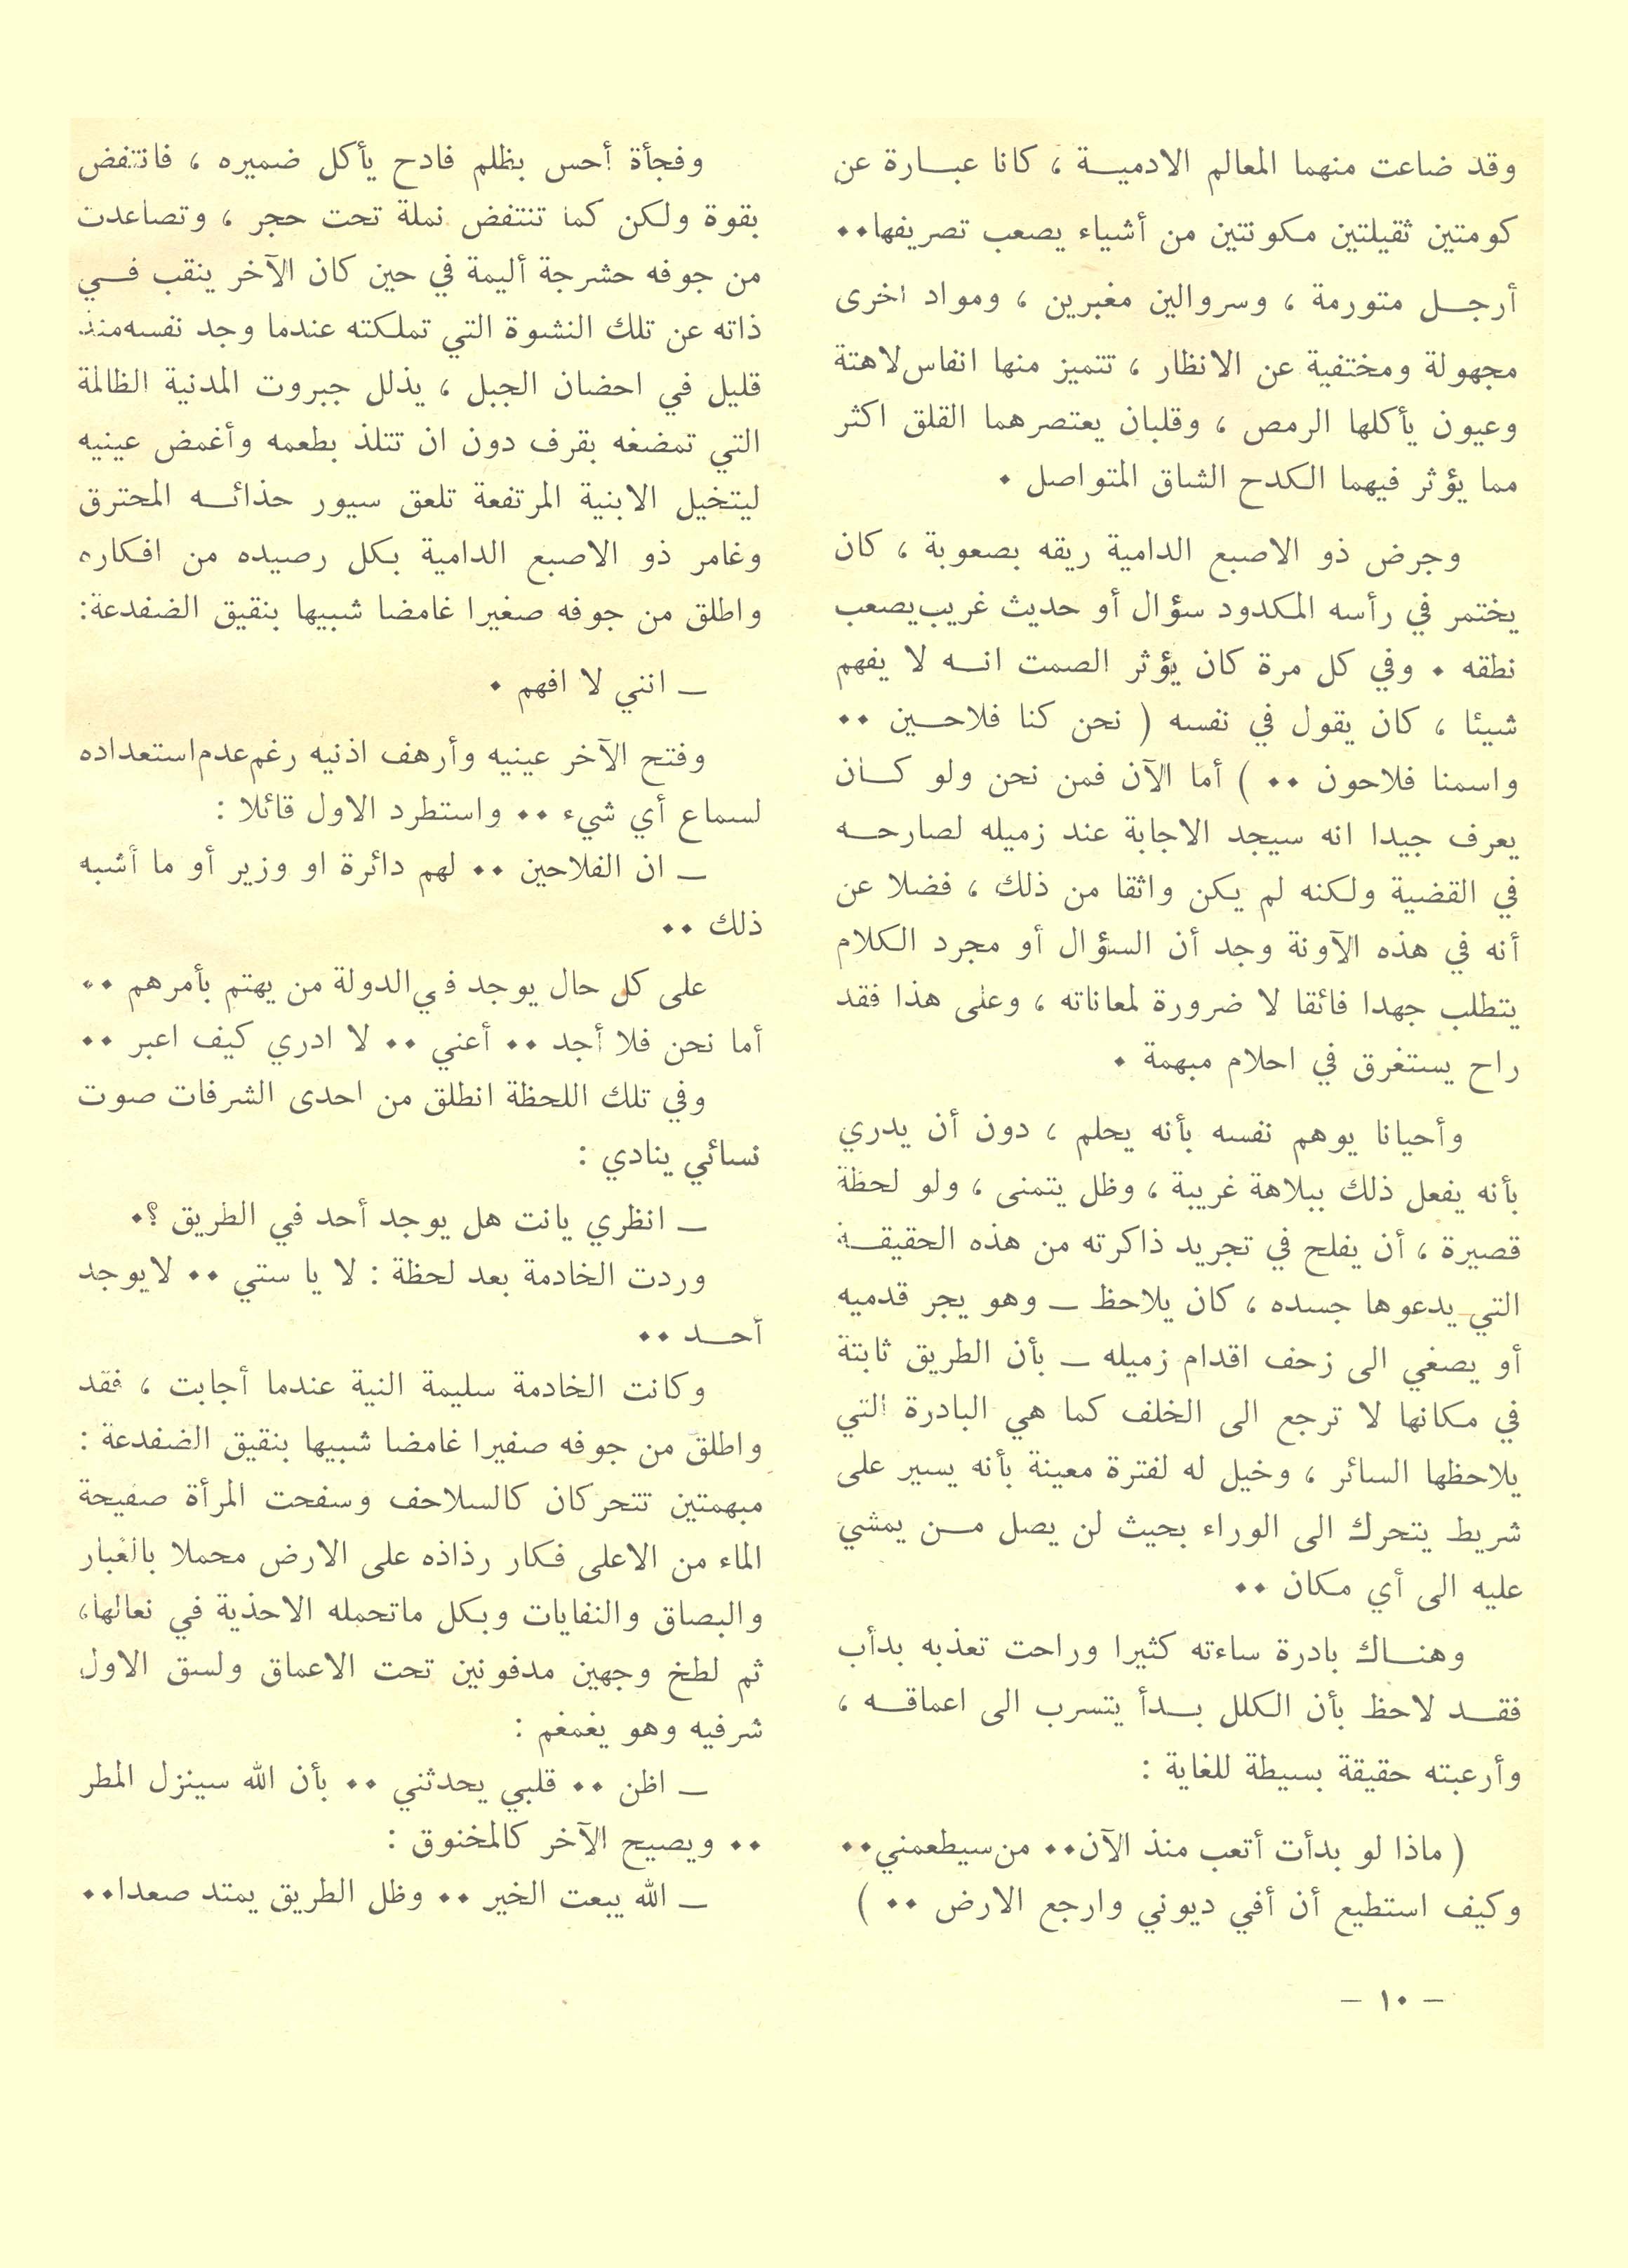 وقد ضاعت منهما المعالم الادمية ، كانا عبارة عن
كومتين ثقيلتين مكونتين من أشياء يصعب تصريفها..
أرجل متورمة ، وسروالين مغبرين ، ومواد اخرى
مجهولة ومختفية عن الانظار ، تتميز منها انفاس لاهتة
وعيون يأكلها الرمص ، وقلبان يعتصرهما القلق اكثر
مما يؤثر فيهما الكدح الشاق المتواصل .
وجرض ذو الاصبع الدامية ريقه بصعوبة ، كان
يختمر في رأسه المكدود سؤال أو حديث غريب يصعب
نطقه . وفي كل مرة كان يؤثر الصمت انه لا يفهم
شيئا ، كان يقول في نفسه ( نحن كنا فلاحين ..
واسمنا فلاحون .. ) أما الآن فمن نحن ولو كان
يعرف جيدا انه سيجد الاجابة عند زميله لصارحه
في القضية ولكنه لم يكن واثقا من ذلك ، فضلا عن
أنه في هذه الآونة وجد أن السؤال أو مجرد الكلام
يتطلب جهدا فائقا لا ضرورة لمعاناته ، وعلى هذا فقد
راح يستغرق في احلام مبهمة .
وأحيانا يوهم نفسه بأنه يحلم ، دون أن يدري
بأنه يفعل ذلك ببلاهة غريبة ، وظل يتمنى ، ولو لحظة
قصيرة ، أن يفلح في تجريد ذاكرته من هذه الحقيقة
التي يدعوها جسده ، كان يلاحظ — وهو يجر قدميه
أو يصغي الى زحف اقدام زميله — بأن الطريق ثابتة
في مكانها لا ترجع الى الخلف كما هي البادرة التي
يلاحظها السائر ، وخيل له لفترة معينة بأنه يسير على
شريط يتحرك الى الوراء بحيث لن يصل من يمشي
عليه الى أي مكان ..
وهناك بادرة ساءته كثيرا وراحت تعذبه بدأب
فقد لاحظ بأن الكلل بدأ يتسرب الى اعماقه ،
وأرعبته حقيقة بسيطة للغاية :
( ماذا لو بدأت أتعب منذ الآن.. من سيطعمني..
وكيف استطيع أن أفي ديوني وارجع الارض .. )
وفجأة أحس بظلم فادح يأكل ضميره ، فانتفض
بقوة ولكن كما تنتفض نملة تحت حجر ، وتصاعدت
من جوفه حشرجة أليمة في حين كان الآخر ينقب في
ذاته عن تلك النشوة التي تملكته عندما وجد نفسه منذ
قليل في احضان الجبل ، يذلل جبروت المدنية الظالمة
التي تمضغه بقرف دون ان تتلذ بطعمه وأغمض عينيه
ليتخيل الابنية المرتفعة تلعق سيور حذائه المحترق
وغامر ذو الاصبع الدامية بكل رصيده من افكاره
واطلق من جوفه صغيرا غامضا شبيها بنقيق الضفدعة:
— انني لا افهم .
وفتح الآخر عينيه وأرهف اذنيه رغم عدم استعداده
لسماع أي شيء .. واستطرد الاول قائلا :
— ان الفلاحين .. لهم دائرة او وزير أو ما أشبه
ذلك ..
على كل حال يوجد في الدولة من يهتم بأمرهم ..
أما نحن فلا أجد .. أعني .. لا ادري كيف اعبر ..
وفي تلك اللحظة انطلق من احدى الشرفات صوت
نسائي ينادي :
— انظري يانت هل يوجد أحد في الطريق ؟.
وردت الخادمة بعد لحظة : لا يا ستي .. لايوجد
أحد ..
وكانت الخادمة سليمة النية عندما أجابت ، فقد
واطلق من جوفه صفيرا غامضا شبيها بنقيق الضفدعة :
مبهمتين تتحركان كالسلاحف وسفحت المرأة صفيحة
الماء من الاعلى فكار رذاذه على الارض محملا بالغبار
والبصاق والنفايات وبكل ماتحمله الاحذية في نعالها،
ثم لطخ وجهين مدفونين تحت الاعماق ولسق الاول
شرفيه وهو يغمغم :
— اظن .. قلبي يحدثني .. بأن الله سينزل المطر
.. ويصيح الآخر كالمخنوق :
— الله يبعت الخير .. وظل الطريق يمتد صعدا..
— ١٠ —